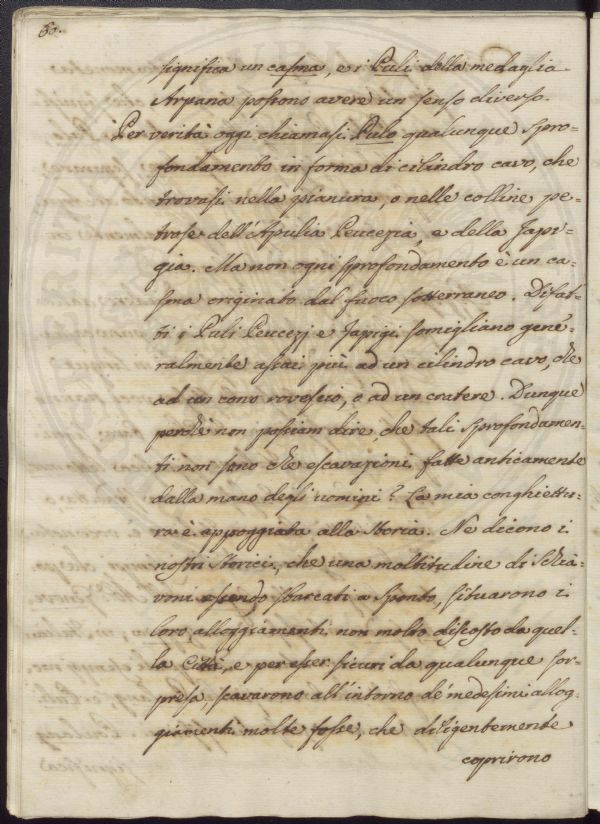 60.
significa un casma, e i Puli della medaglia
Arpana possono avere un senso diverso.
Per verità oggi chiamasi Pulo qualunque spro-
fondamento in forma di cilindro cavo, che
trovasi nella pianura, o nelle colline pe-
trose dell'Apulia Peucezia, e della Japi-
gia. Ma non ogni sprofondamento è un ca-
sma originato dal fuoco sotterraneo. Difat-
ti i Puli Peucezj e Japigi somigliano gene-
ralmente assai più ad un cilindro cavo, che
ad un cono rovescio, o ad un cratere. Dunque
perchè non possiam dire, che tali sprofondamen-
ti non sono che escavazioni fatte anticamente
dalla mano degli uomini? La mia conghiettu-
ra è appoggiata alla Storia. Ne dicono i
nostri Storici, che una moltitudine di Schia-
voni essendo sbarcati a Siponto, situarono i
loro alloggiamenti non molto discosto da quel-
la Città, e per esser sicuri da qualunque sor-
presa, scavarono all'intorno de' medesimi allog-
giamenti molte fosse, che diligentemente
coprirono